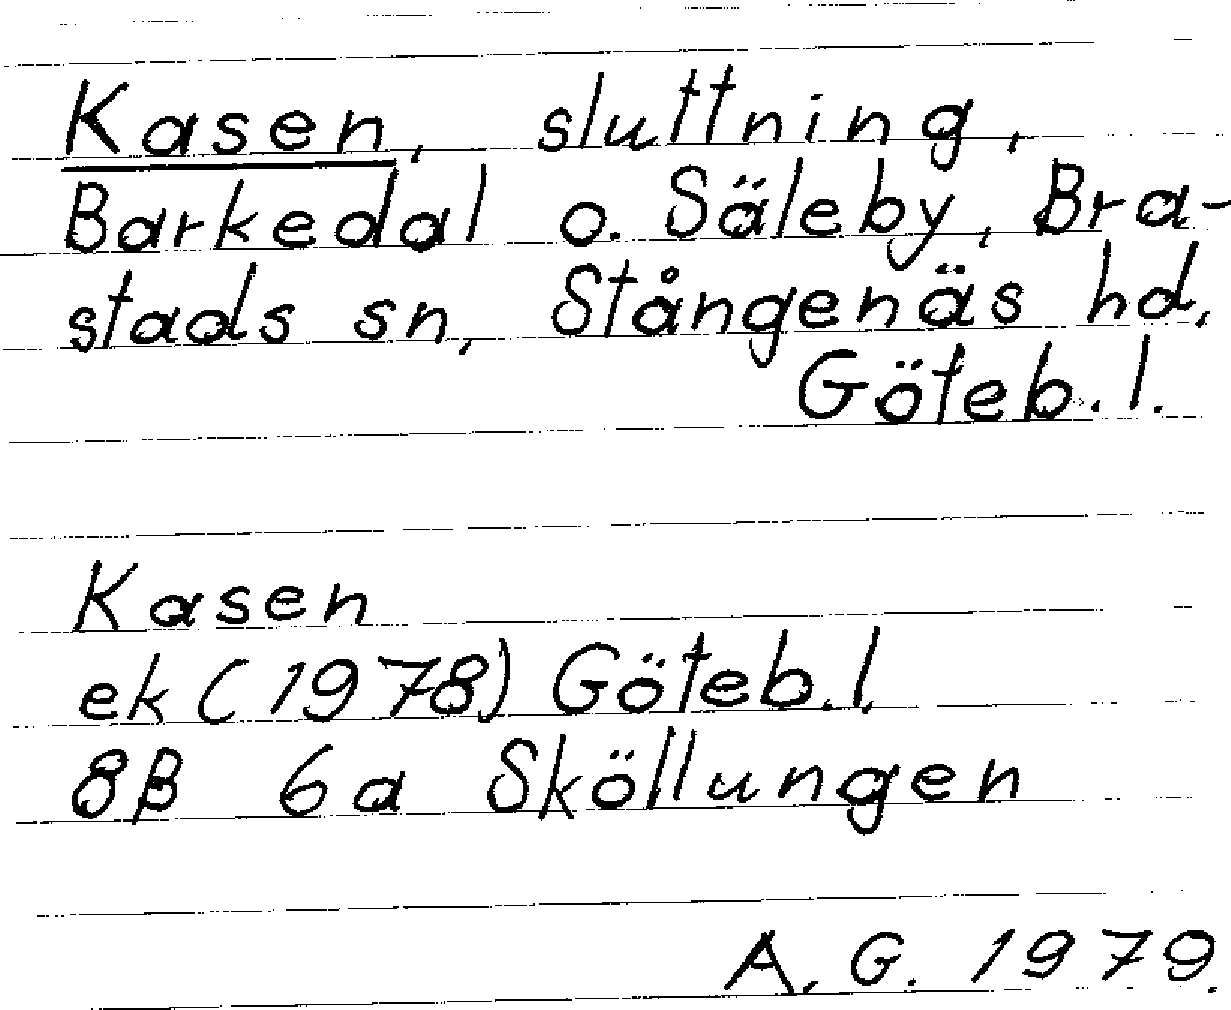 Kasen, sluttning,
Barkedal o. Säleby, Bra-
stads sn, Stångenäs hd,
Göteb. l.
Kasen
ek (1978) Göteb. l.
8B 6a Sköllungen
A. G. 1979.